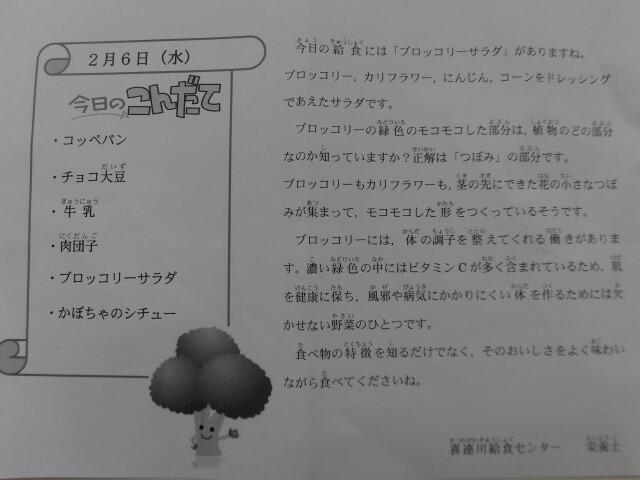 2月6日（水）
今日のこんだて
・コッペパン
・チョコ大豆
・牛乳
・肉団子
・ブロッコリーサラダ
・かぼちゃのシチュー
今日の給食には「ブロッコリーサラダ」がありますね。
ブロッコリー，カリフラワー，にんじん，コーンをドレッシング
であえたサラダです。
ブロッコリーの緑色のモコモコした部分は，植物のどの部分
なのか知っていますか？正解は「つぼみ」の部分です。
ブロッコリーもカリフラワーも，茎の先にできた花の小さなつぼ
みが集まって，モコモコした形をつくっているそうです。
ブロッコリーには，体の調子を整えてくれる働きがありま
す。濃い緑色の中にはビタミンCが多く含まれているため，肌
を健康に保ち，風邪や病気にかかりにくい体を作るためには欠
かせない野菜のひとつです。
食べ物の特徴を知るだけでなく，そのおいしさをよく味わい
ながら食べてくださいね。
喜連川給食センター　栄養士